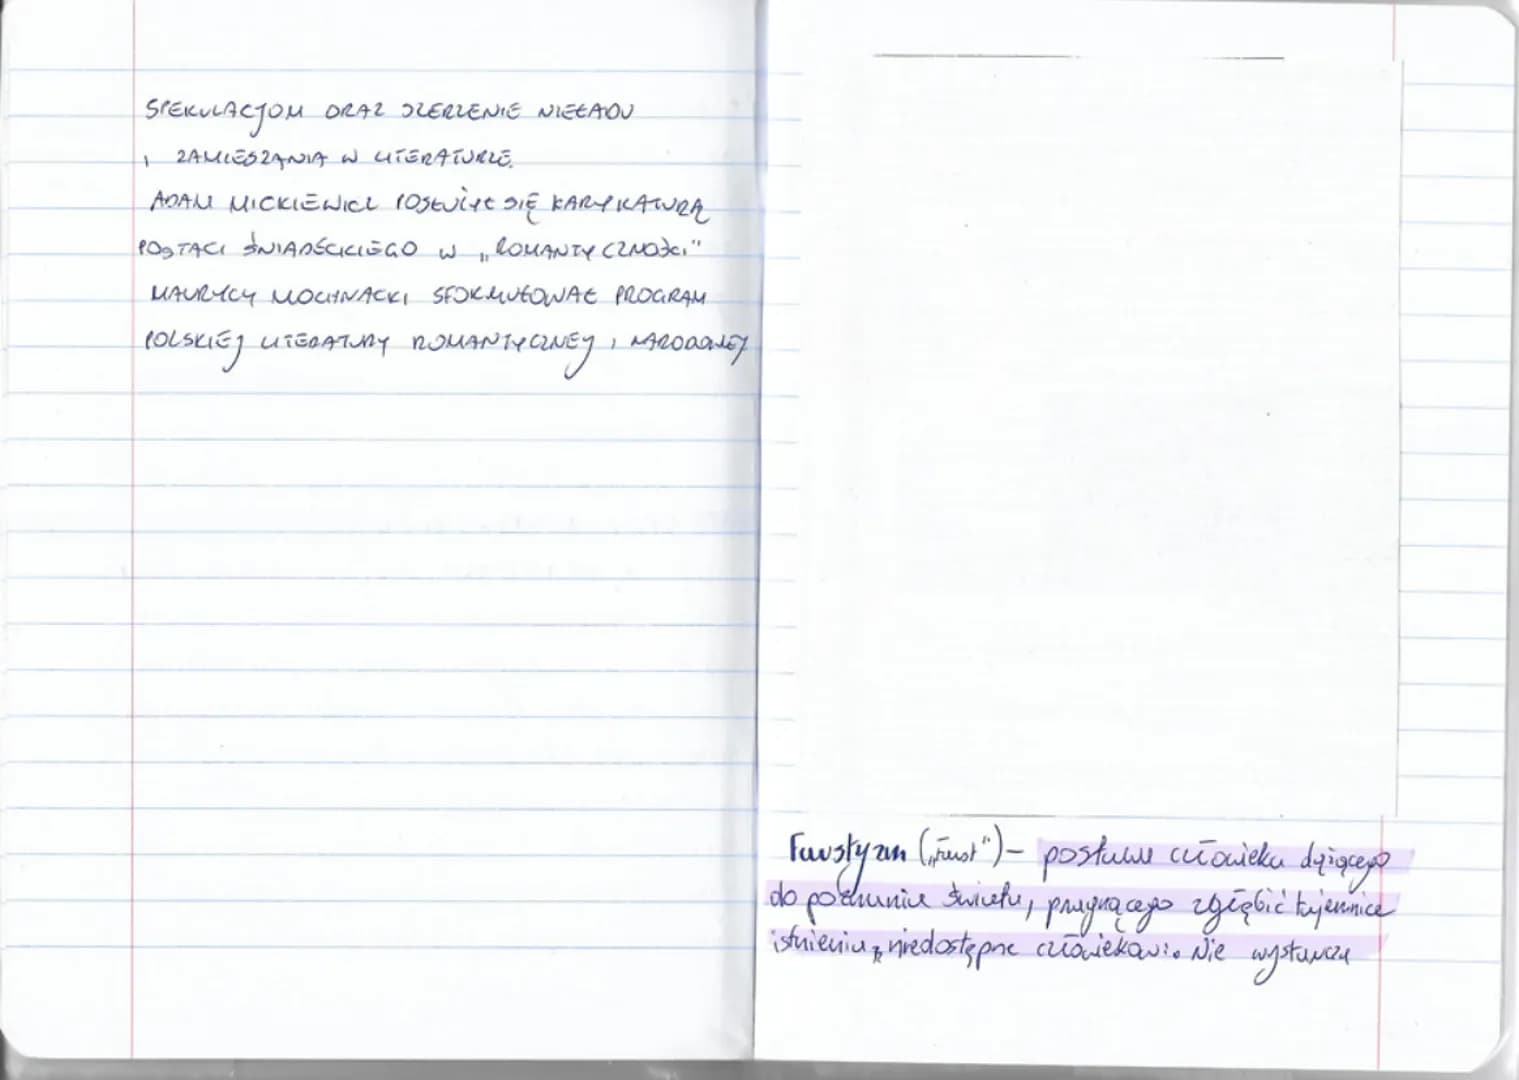 SPEKULACJOM ORAZ SZERZENIE NIEŁADU
I ZAMIESZANIA W LITERATURZE.
ADAM MICKIEWICZ POSŁUŻYŁ SIĘ KARYKATURĄ
POSTACI ŚNIADECKIEGO W „ROMANTYCZNOŚCI"
MAURYCY MOCHNACKI SFORMUŁOWAŁ PROGRAM
POLSKIEJ LITERATURY ROMANTYCZNEJ I NARODOWEJ
Faustyzm („Faust") – postawa człowieka dążącego
do poznania świata, pragnącego zgłębić tajemnice
istnienia, niedostępne człowiekowi. Nie wystarcza